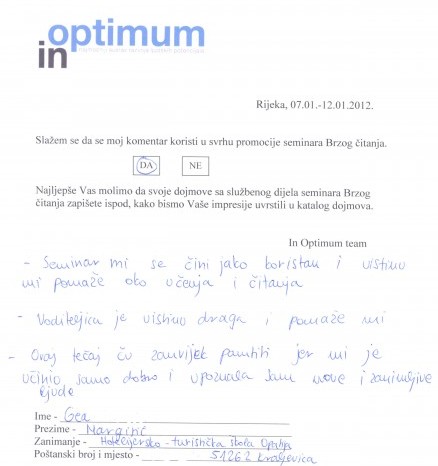 in optimum
Rijeka, 07.01.-12.01.2012.
Slažem se da se moj komentar koristi u svrhu promocije seminara Brzog čitanja.
DA NE
Najljepše Vas molimo da svoje dojmove sa službenog dijela seminara Brzog
čitanja zapišete ispod, kako bismo Vaše impresije uvrstili u katalog dojmova.
In Optimum team
- Seminar mi se čini jako koristan i uistinu
mi pomaže oko učenja i čitanja
- Voditeljica je uistinu draga i pomaže mi
- Ovaj tečaj ću zauvijek pamtiti jer mi je
učinio samo dobro i upoznala sam nove i zanimljive
ljude
Ime - Gea
Prezime -
Zanimanje - Hotelijersko - turistička škola Opatija
Poštanski broj i mjesto - 51262 Kraljevica